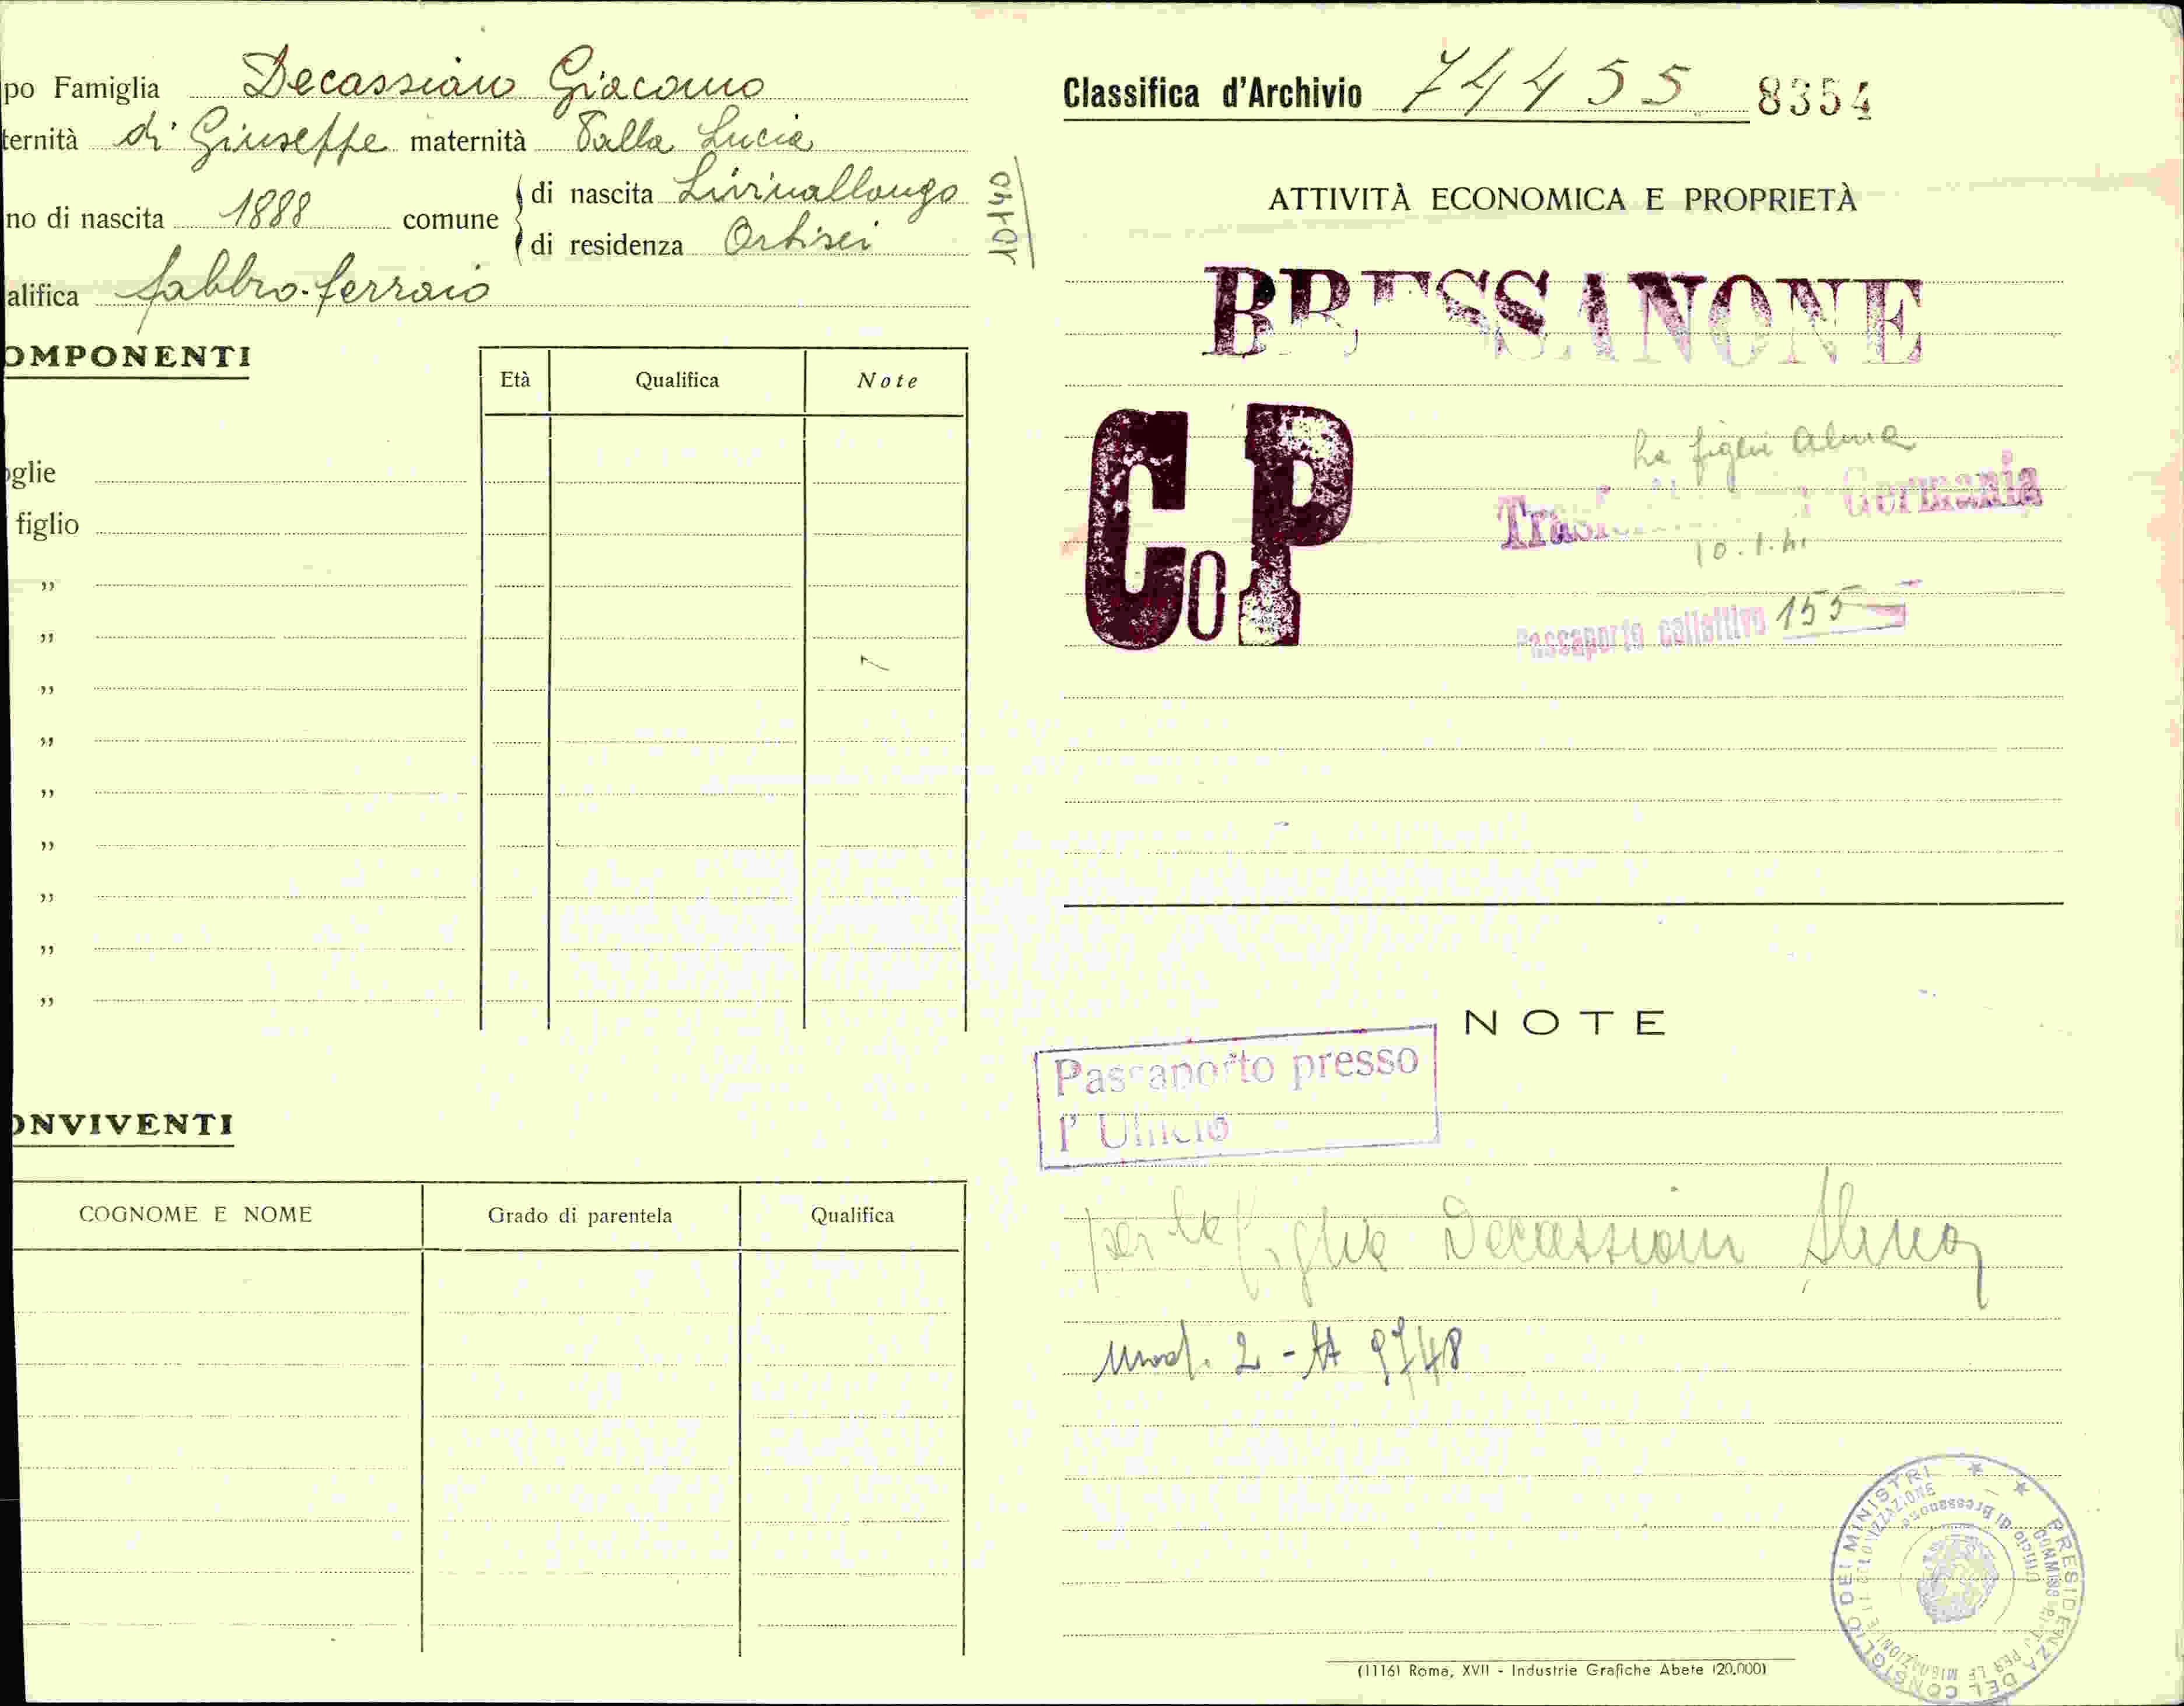 po Famiglia Decassian Giacomo
ternità di Giuseppe maternità Palla Lucia
no di nascita 1888 comune di nascita Livinallongo
di residenza Ortisei
alifica fabbro-ferraio
OMPONENTI
Età Qualifica Note
oglie
figlio
„
„
„
„
„
„
„
„
„
ONVIVENTI
COGNOME E NOME Grado di parentela Qualifica
Classifica d'Archivio 74455 8354
ATTIVITÀ ECONOMICA E PROPRIETÀ
BRESSANONE
CoP
la figlia Alma
Germania
10.1.41
Passaporto collettivo 155
NOTE
Passaporto presso
l'Ufficio
per la figlia Decassian Alma
mod. 2 - A 9748
PRESIDENZA DEL CONSIGLIO DEI MINISTRI
Ufficio di Bressanone
(1116) Roma, XVII - Industrie Grafiche Abete (20.000)